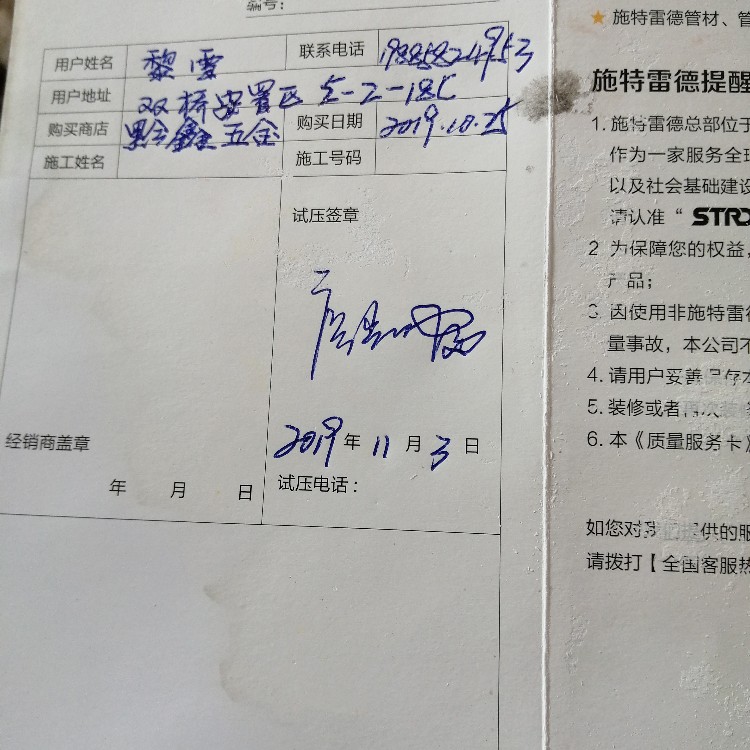 编号:
用户姓名 黎雪 联系电话
用户地址 双桥安置区 5-2-18C
购买商店 黔鑫五金 购买日期 2019.10.25
施工姓名 施工号码
试压签章
2019 年 11 月 3 日
经销商盖章
年 月 日
试压电话：
★ 施特雷德管材、管
施特雷德提醒
1. 施特雷德总部位于
作为一家服务全球
以及社会基础建设
请认准“ STR
2 为保障您的权益，
产品；
3. 因使用非施特雷德
量事故，本公司不
4. 请用户妥善保存本
5. 装修或者再次装修
6. 本《质量服务卡》
如您对我们提供的服
请拨打【全国客服热